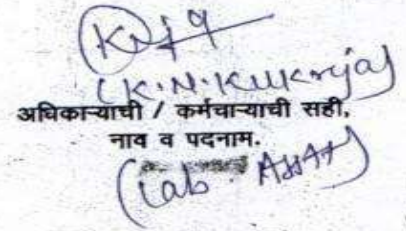 (K.N. Kukreja)
अधिकाऱ्याची / कर्मचाऱ्याची सही,
नाव व पदनाम.
(Lab. Asst)